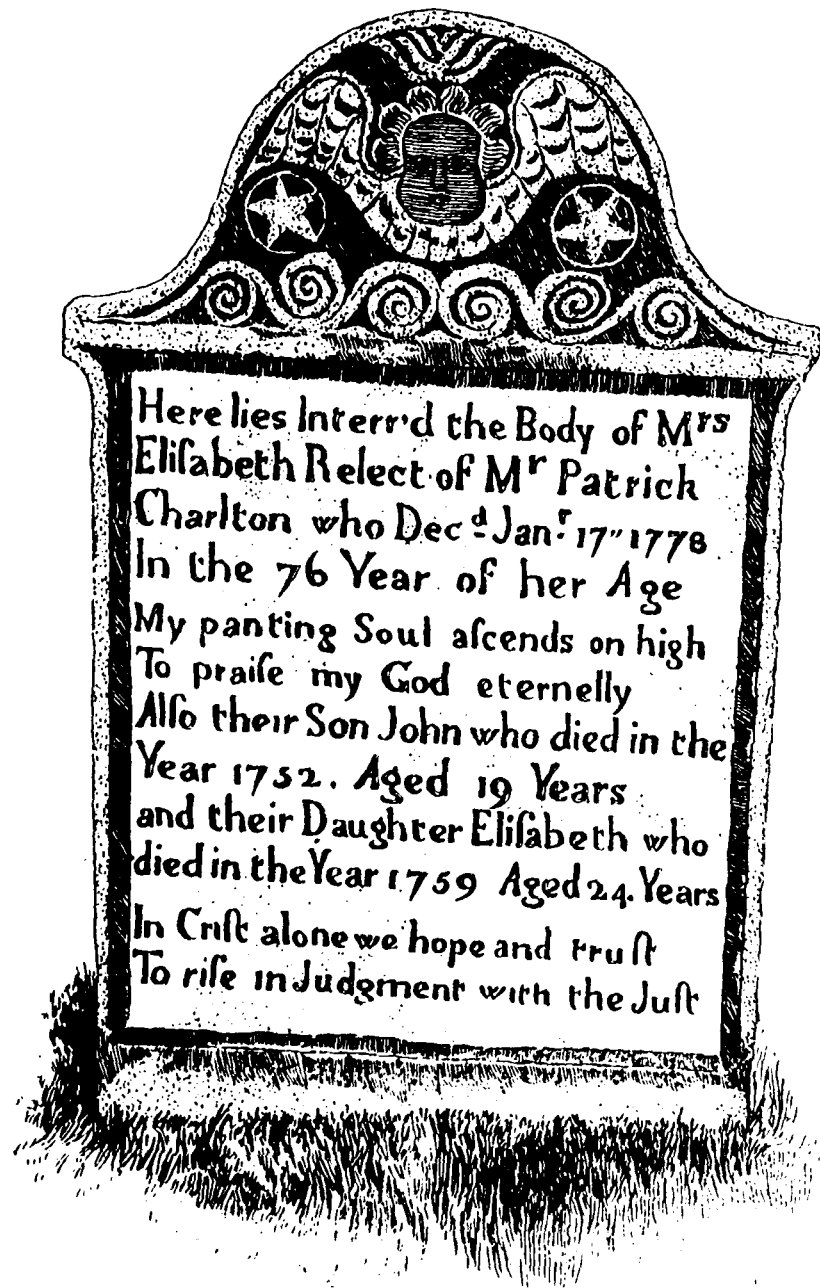 Here lies Interr'd the Body of Mrs
Eliſabeth Relect of Mr Patrick
Charlton who Decd Janr 17" 1778
In the 76 Year of her Age
My panting Soul aſcends on high
To praiſe my God eternelly
Alſo their Son John who died in the
Year 1752. Aged 19 Years
and their Daughter Eliſabeth who
died in the Year 1759 Aged 24. Years
In Criſt alone we hope and truſt
To riſe in Judgment with the Juſt